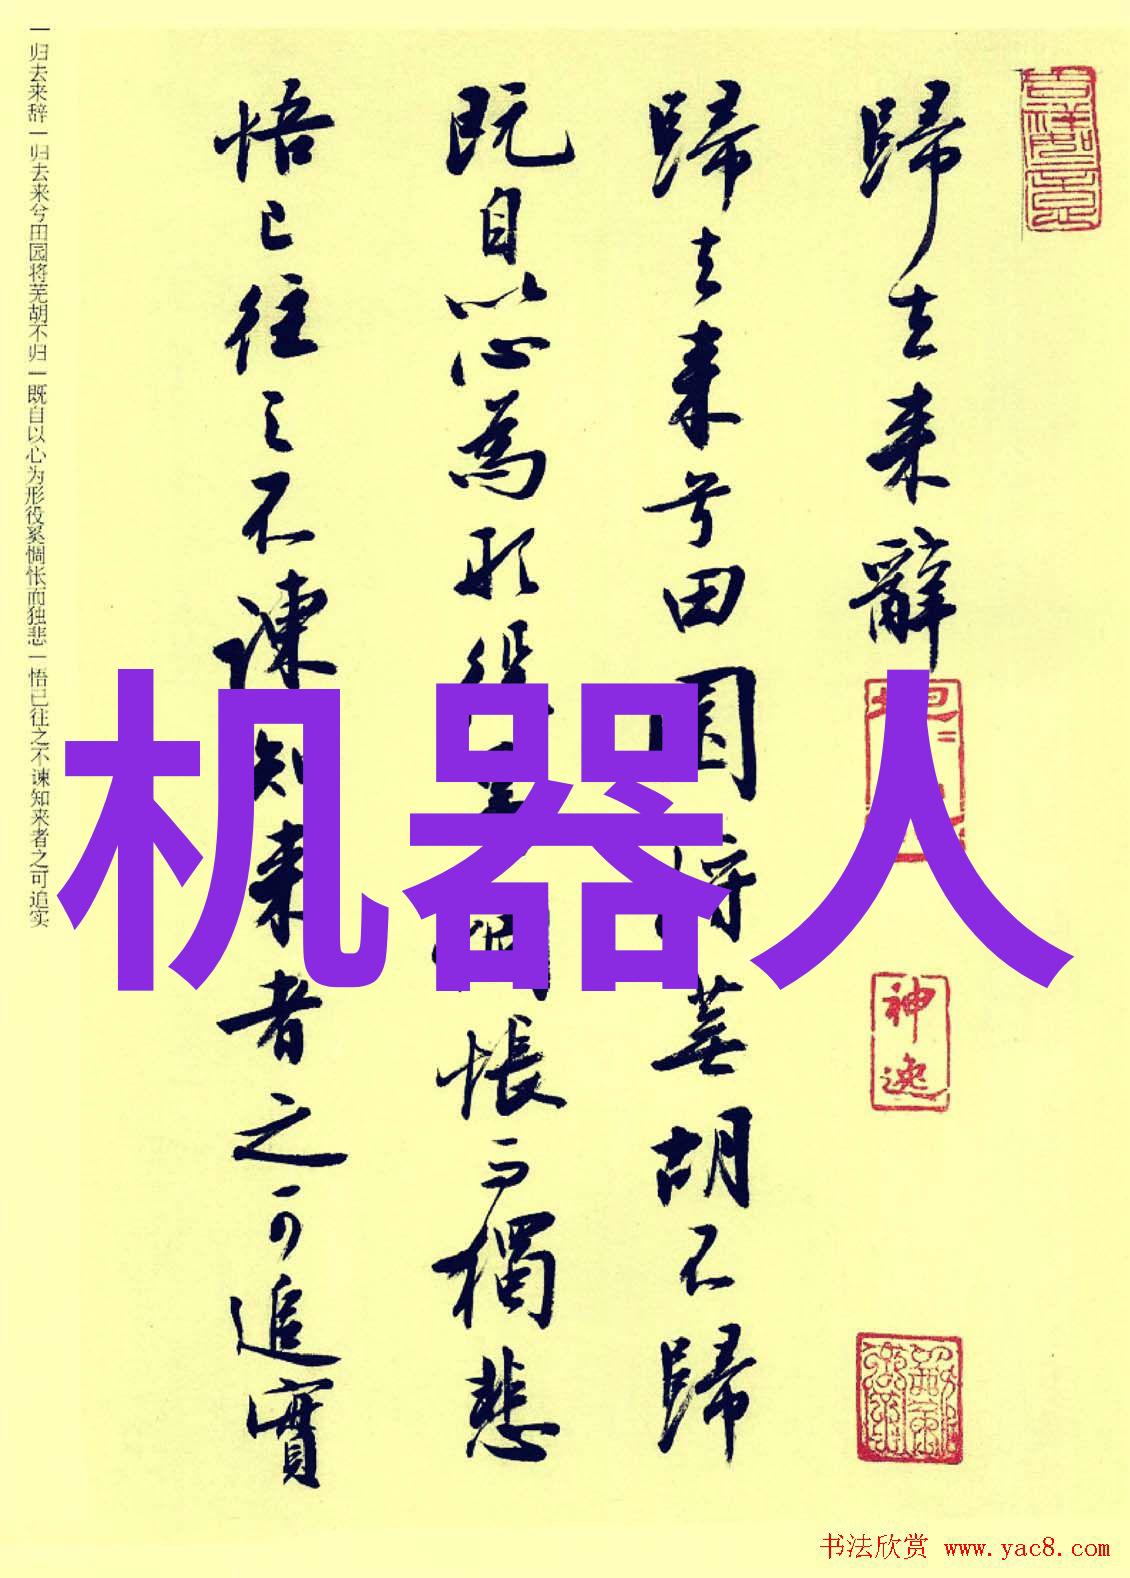 歸去来辭
歸去来兮田園将蕪胡不歸
既自以心為形役奚惆悵而獨悲
悟已往之不諫知来者之可追實
機器人
神逸
一归去来辞一归去来兮田园将芜胡不归一既自以心为形役奚惆怅而独悲一悟已往之不谏知来者之可追实
书法欣赏 www.yac8.com